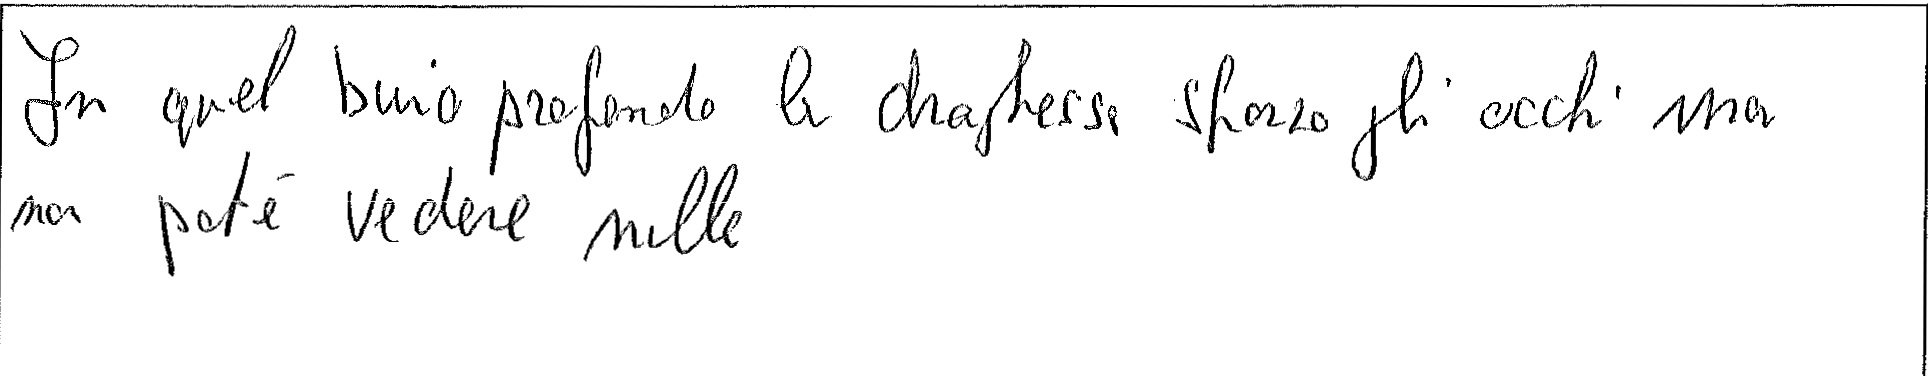 In quel buio profondo la draghessa sforzo gli occhi ma
non poté vedere nulla